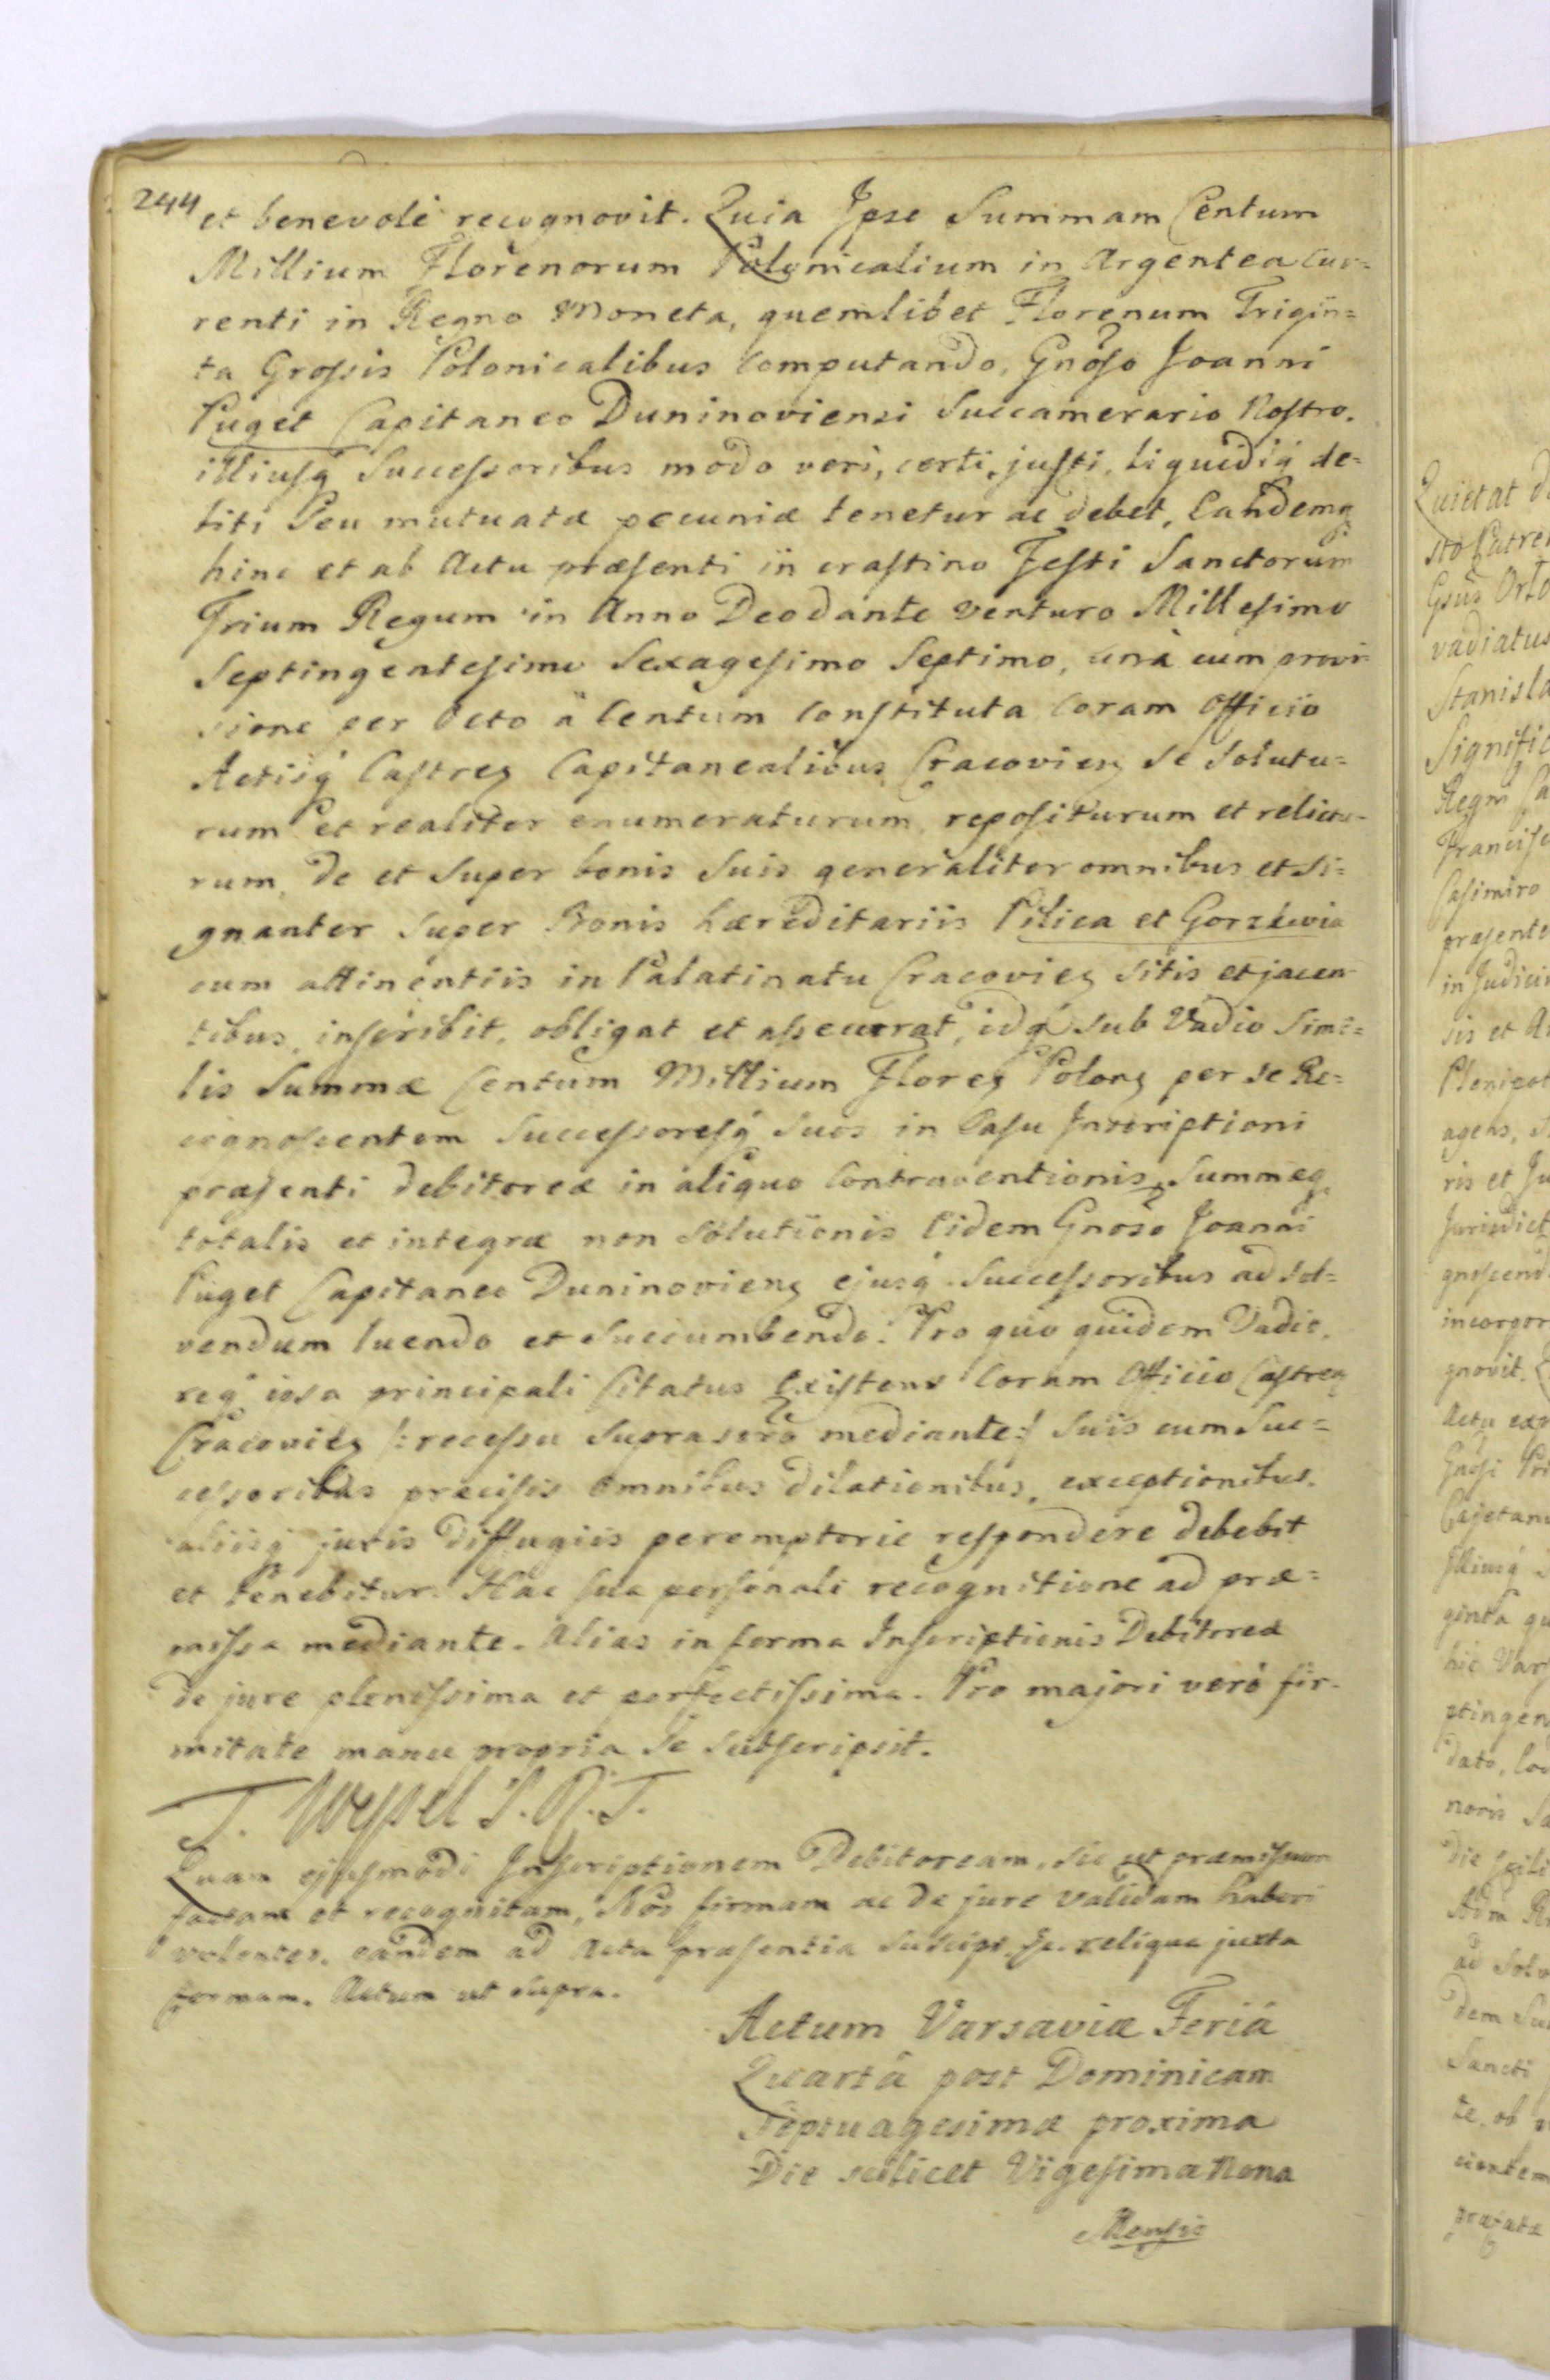 244
et benevolè recognovit. Quia Ipse Summam Centum
Millium Florenorum Polonicalium in Argentea Cur=
renti in Regno Moneta, quemlibet Florenum Trigin=
ta Grossis Polonicalibus computando, Gnoso Joanni
Puget Capitaneo Duninoviensi Succamerario Nostro.
illiusq Successoribus modo veri, certi, justi, liquidiq de=
biti Seu mutuatæ pecuniæ tenetur ac debet, Eandemq
hinc et ab Actu præsenti in crastino Festi Sanctorum
Trium Regum in Anno Deo dante venturo Millesimo
Septingentesimo Sexagesimo Septimo, unà cum provi=
sione per Octo à Centum Constituta Coram Officio
Actisq Castren Capitanealibus Cracovien se Solutu=
rum et realiter enumeraturum, repositurum et relictu=
rum, de et Super bonis Suis generaliter omnibus et Si=
gnanter Super Bonis hæreditariis Pilica et Gorzkwia
cum attinentiis in Palatinatu Cracovien Sitis et jacen=
tibus, inscribit, obligat et assecurat, idq Sub Vadio Simi=
lis Summæ Centum Millium Floren Polon per se Re=
cognoscentem Successoresq Suos in Casu Inscriptioni
præsenti debitoreæ in aliquo Contraventionis, Summæq
totalis et integræ non Solutionis Eidem Gnoso Joanni
Puget Capitaneo Duninovien ejusq Successoribus ad Sol=
vendum luendo et Succumbendo. Pro quo quidem Vadio,
req ipsa principali Citatus Existens Coram Officio Castren
Cracovien /: recessu Suprascro mediante :/ Suis cum Suc=
cessoribus præcisis omnibus dilationibus, exceptionibus,
aliisq juris diffugiis peremptorie respondere debebit
et tenebitur. Hac Sua personali recognitione ad præ=
missa mediante. Alias in forma Inscriptionis Debitoreæ
de jure plenissima et perfectissima. Pro majori verò fir=
mitate manu propria Se Subscripsit.
T. Wessel P. R. T.
Quam ejusmodi Inscriptionem Debitoream, sic ut præmissum
factam et recognitam, Nos firmam ac de jure validam haberi
volentes, eandem ad Acta præsentia suscipi. &c. reliqua juxta
formam. Actum ut supra.
Actum Varsaviæ Feriâ
Quartâ post Dominicam
Septuagesimæ proxima
Die scilicet Vigesima Nona
Mensis